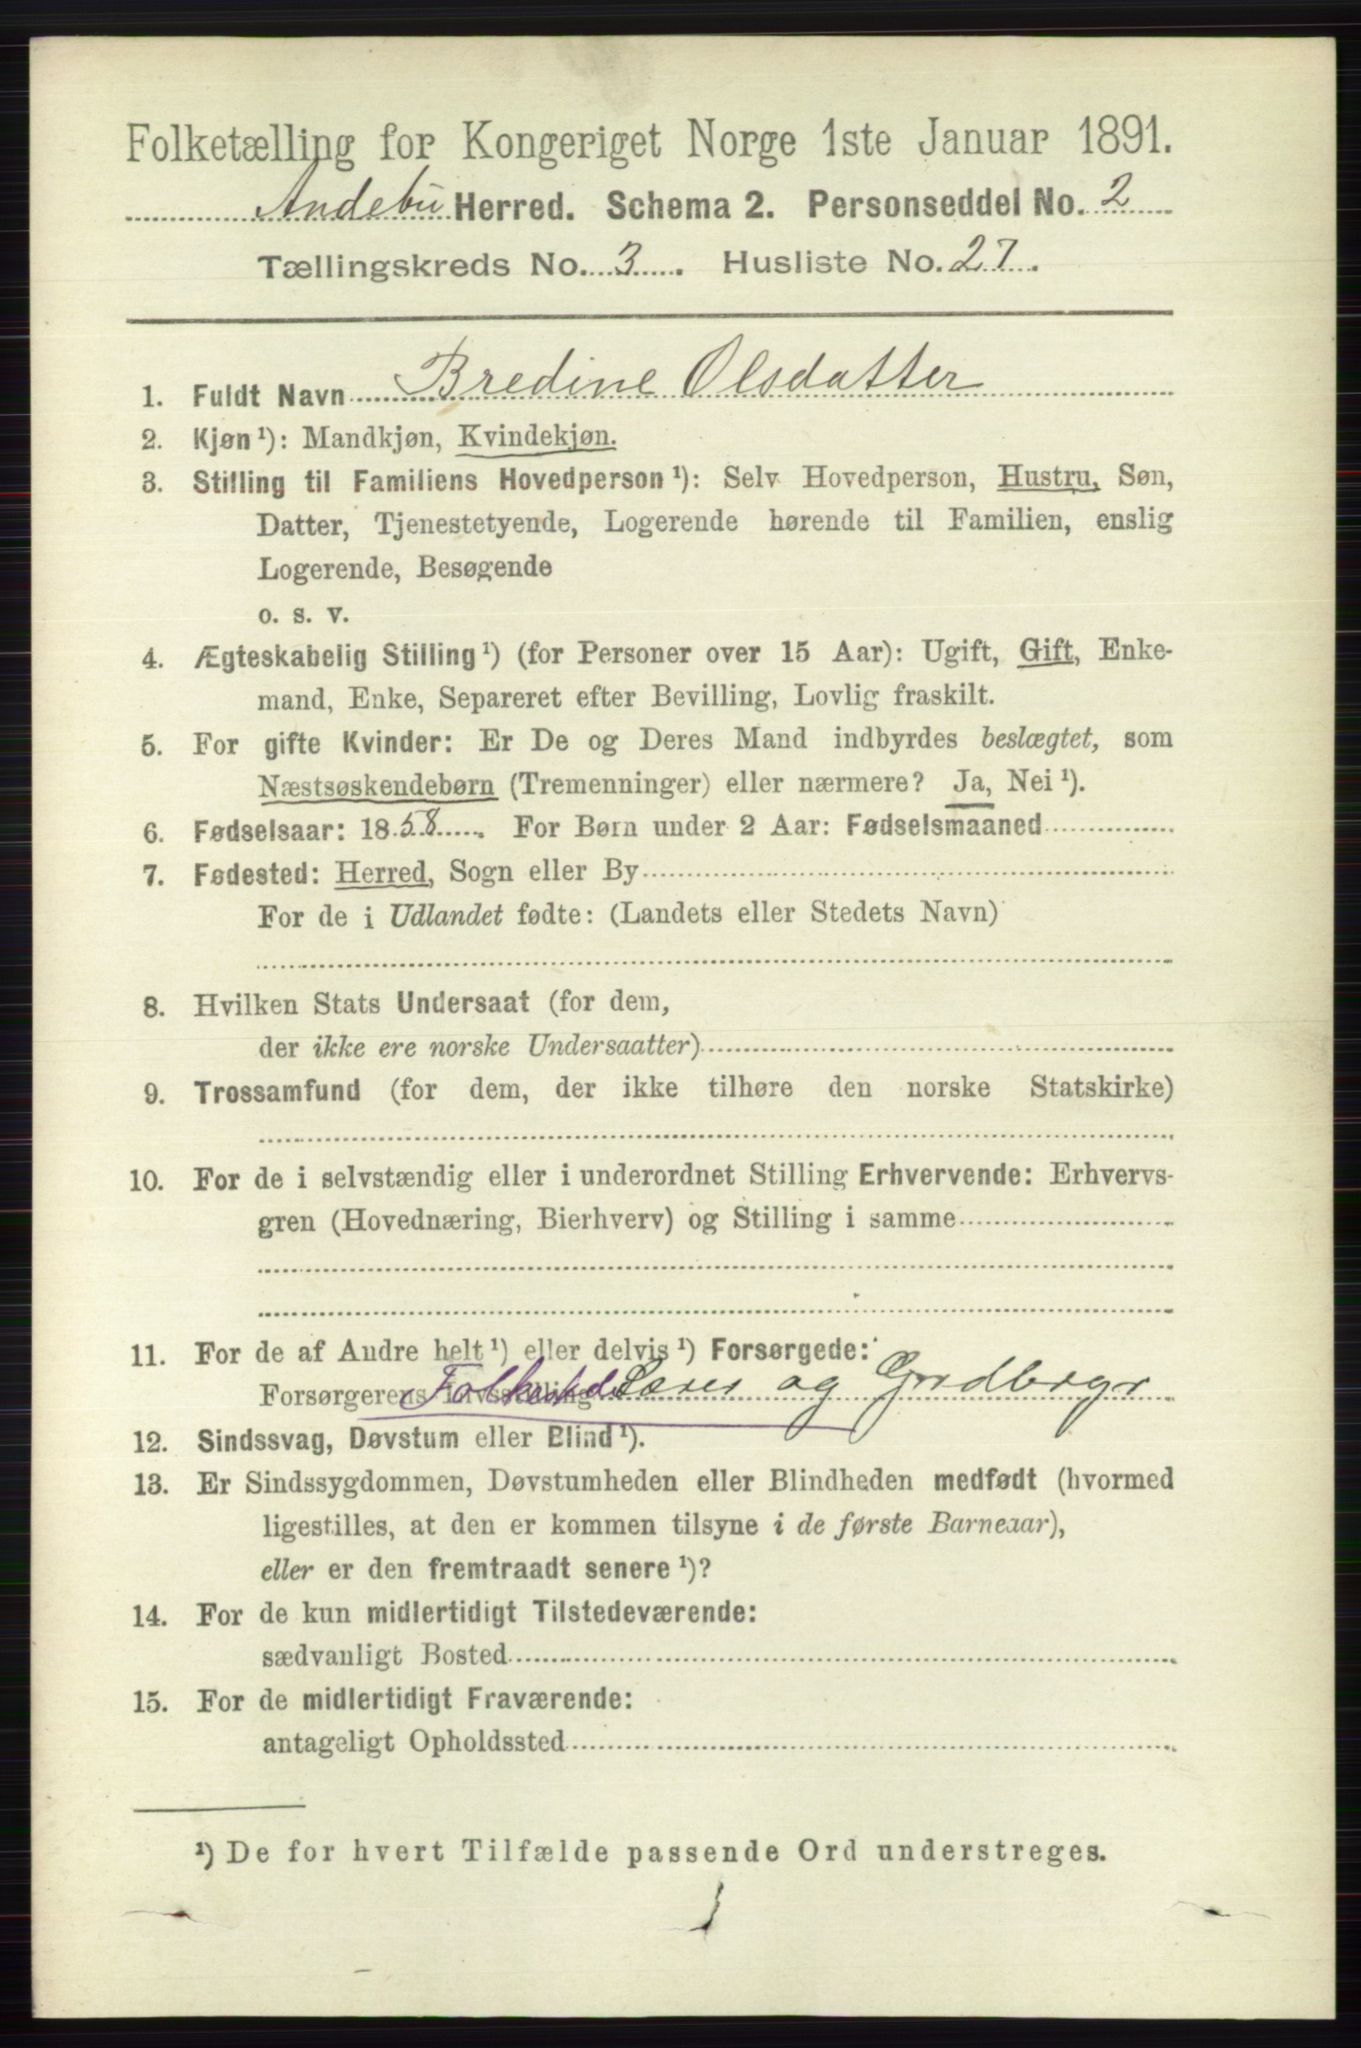 Folketælling for Kongeriget Norge 1ste Januar 1891.
Andebu Herred. Schema 2. Personseddel No. 2
Tællingskreds No. 3. Husliste No. 27.
1. Fuldt Navn Bredine Olsdatter
2. Kjøn¹): Mandkjøn, Kvindekjøn.
3. Stilling til Familiens Hovedperson¹): Selv Hovedperson, Hustru, Søn,
Datter, Tjenestetyende, Logerende hørende til Familien, enslig
Logerende, Besøgende
o. s. v.
4. Ægteskabelig Stilling¹) (for Personer over 15 Aar): Ugift, Gift, Enke-
mand, Enke, Separeret efter Bevilling, Lovlig fraskilt.
5. For gifte Kvinder: Er De og Deres Mand indbyrdes beslægtet, som
Næstsøskendebørn (Tremenninger) eller nærmere? Ja, Nei¹).
6. Fødselsaar: 1858. For Børn under 2 Aar: Fødselsmaaned
7. Fødested: Herred, Sogn eller By
For de i Udlandet fødte: (Landets eller Stedets Navn)
8. Hvilken Stats Undersaat (for dem,
der ikke ere norske Undersaatter)
9. Trossamfund (for dem, der ikke tilhøre den norske Statskirke)
10. For de i selvstændig eller i underordnet Stilling Erhvervende: Erhvervs-
gren (Hovednæring, Bierhverv) og Stilling i samme
11. For de af Andre helt¹) eller delvis¹) Forsørgede:
Forsørgerens Livsstilling Folkeskole Lærer og Gardbryr
12. Sindssvag, Døvstum eller Blind¹).
13. Er Sindssygdommen, Døvstumheden eller Blindheden medfødt (hvormed
ligestilles, at den er kommen tilsyne i de første Barneaar),
eller er den fremtraadt senere¹)?
14. For de kun midlertidigt Tilstedeværende:
sædvanligt Bosted
15. For de midlertidigt Fraværende:
antageligt Opholdssted
¹) De for hvert Tilfælde passende Ord understreges.